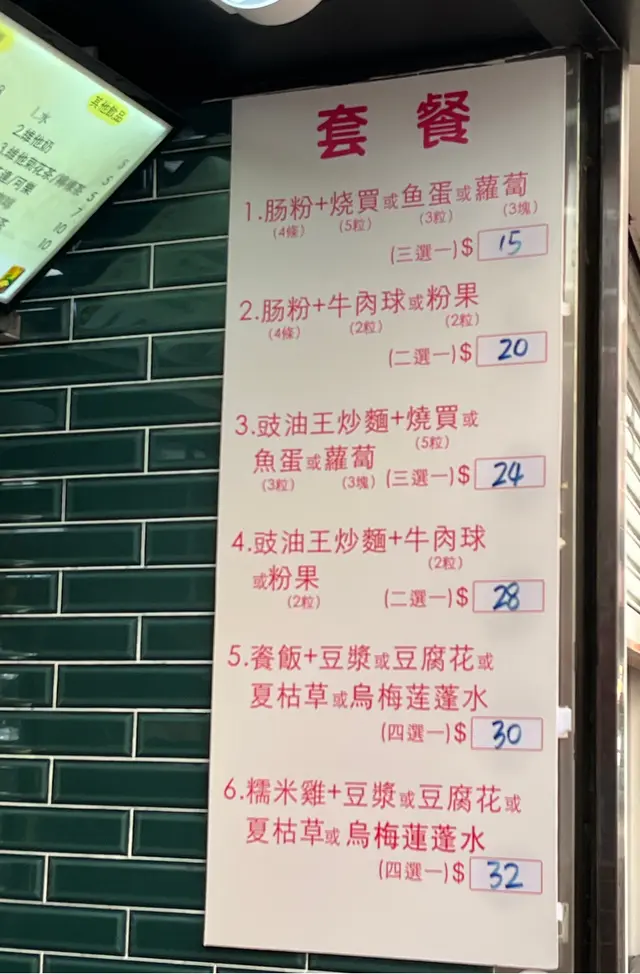 其他飲品
1.水
2.維他奶
5
5
5
7
10
10
套餐
1.肠粉+烧買或鱼蛋或蘿蔔
(4條) (5粒) (3粒) (3塊)
(三選一)$ 15
2.肠粉+牛肉球或粉果
(4條) (2粒) (2粒)
(二選一)$ 20
3.豉油王炒麵+燒買或
(5粒)
魚蛋或蘿蔔
(3粒) (3塊) (三選一)$ 24
4.豉油王炒麵+牛肉球
(2粒)
或粉果
(2粒) (二選一)$ 28
5.餈飯+豆漿或豆腐花或
夏枯草或烏梅莲蓬水
(四選一)$ 30
6.糯米雞+豆漿或豆腐花或
夏枯草或烏梅蓮蓬水
(四選一)$ 32